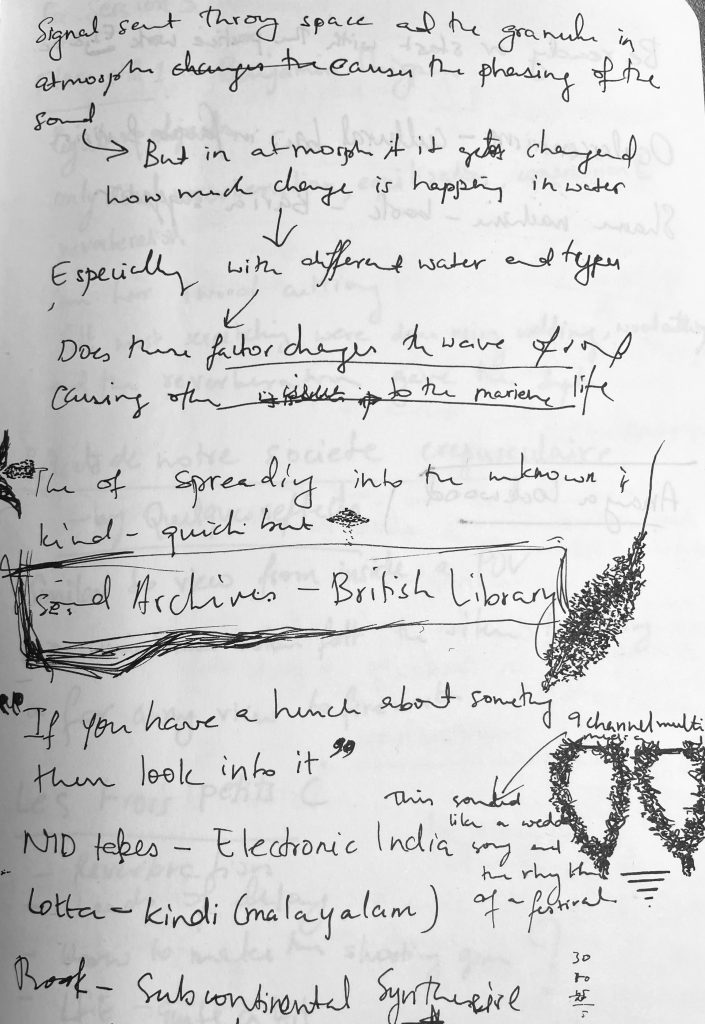 Signal sent throug space ad the granule in
atmosphe changes the causes the phasing of the
sound
But in atmosph if it gets changend
how much change is happening in water
Especially with different water and types
Does these factor changes the wave of
causing other to the mariene life
The of spreading into the unknown is
kind - quick but
Sound Archives - British Library
"If you have a hunch about something
then look into it"
9 channel multi
This sounded
like a wedd
song and
the rhythm
of a festival
NID tapes - Electronic India
Lotta - kindi (malayalam)
Book - Subcontinental
30
80
5